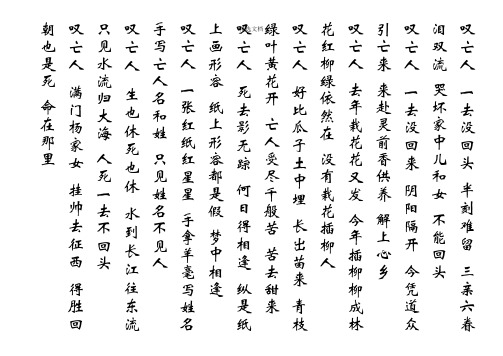 文档
叹亡人 一去没回头 半刻难留 三亲六眷
泪双流 哭坏家中儿和女 不能回头
叹亡人 一去没回来 阴阳隔开 今凭道众
引亡来 来赴灵前香供养 解上心乡
叹亡人 去年栽花花又发 今年插柳柳成林
花红柳绿依然在 没有栽花插柳人
叹亡人 好比瓜子土中埋 长出苗来 青枝
绿叶黄花开 亡人受尽千般苦 苦去甜来
叹亡人 死去影无踪 何日得相逢 纵是纸
上画形容 纸上形容都是假 梦中相逢
叹亡人 一张红纸红星星 手拿羊毫写姓名
手写亡人名和姓 只见姓名不见人
叹亡人 生也休死也休 水到长江往东流
只见水流归大海 人死一去不回头
叹亡人 满门杨家女 挂帅去征西 得胜回
朝也是死 命在那里